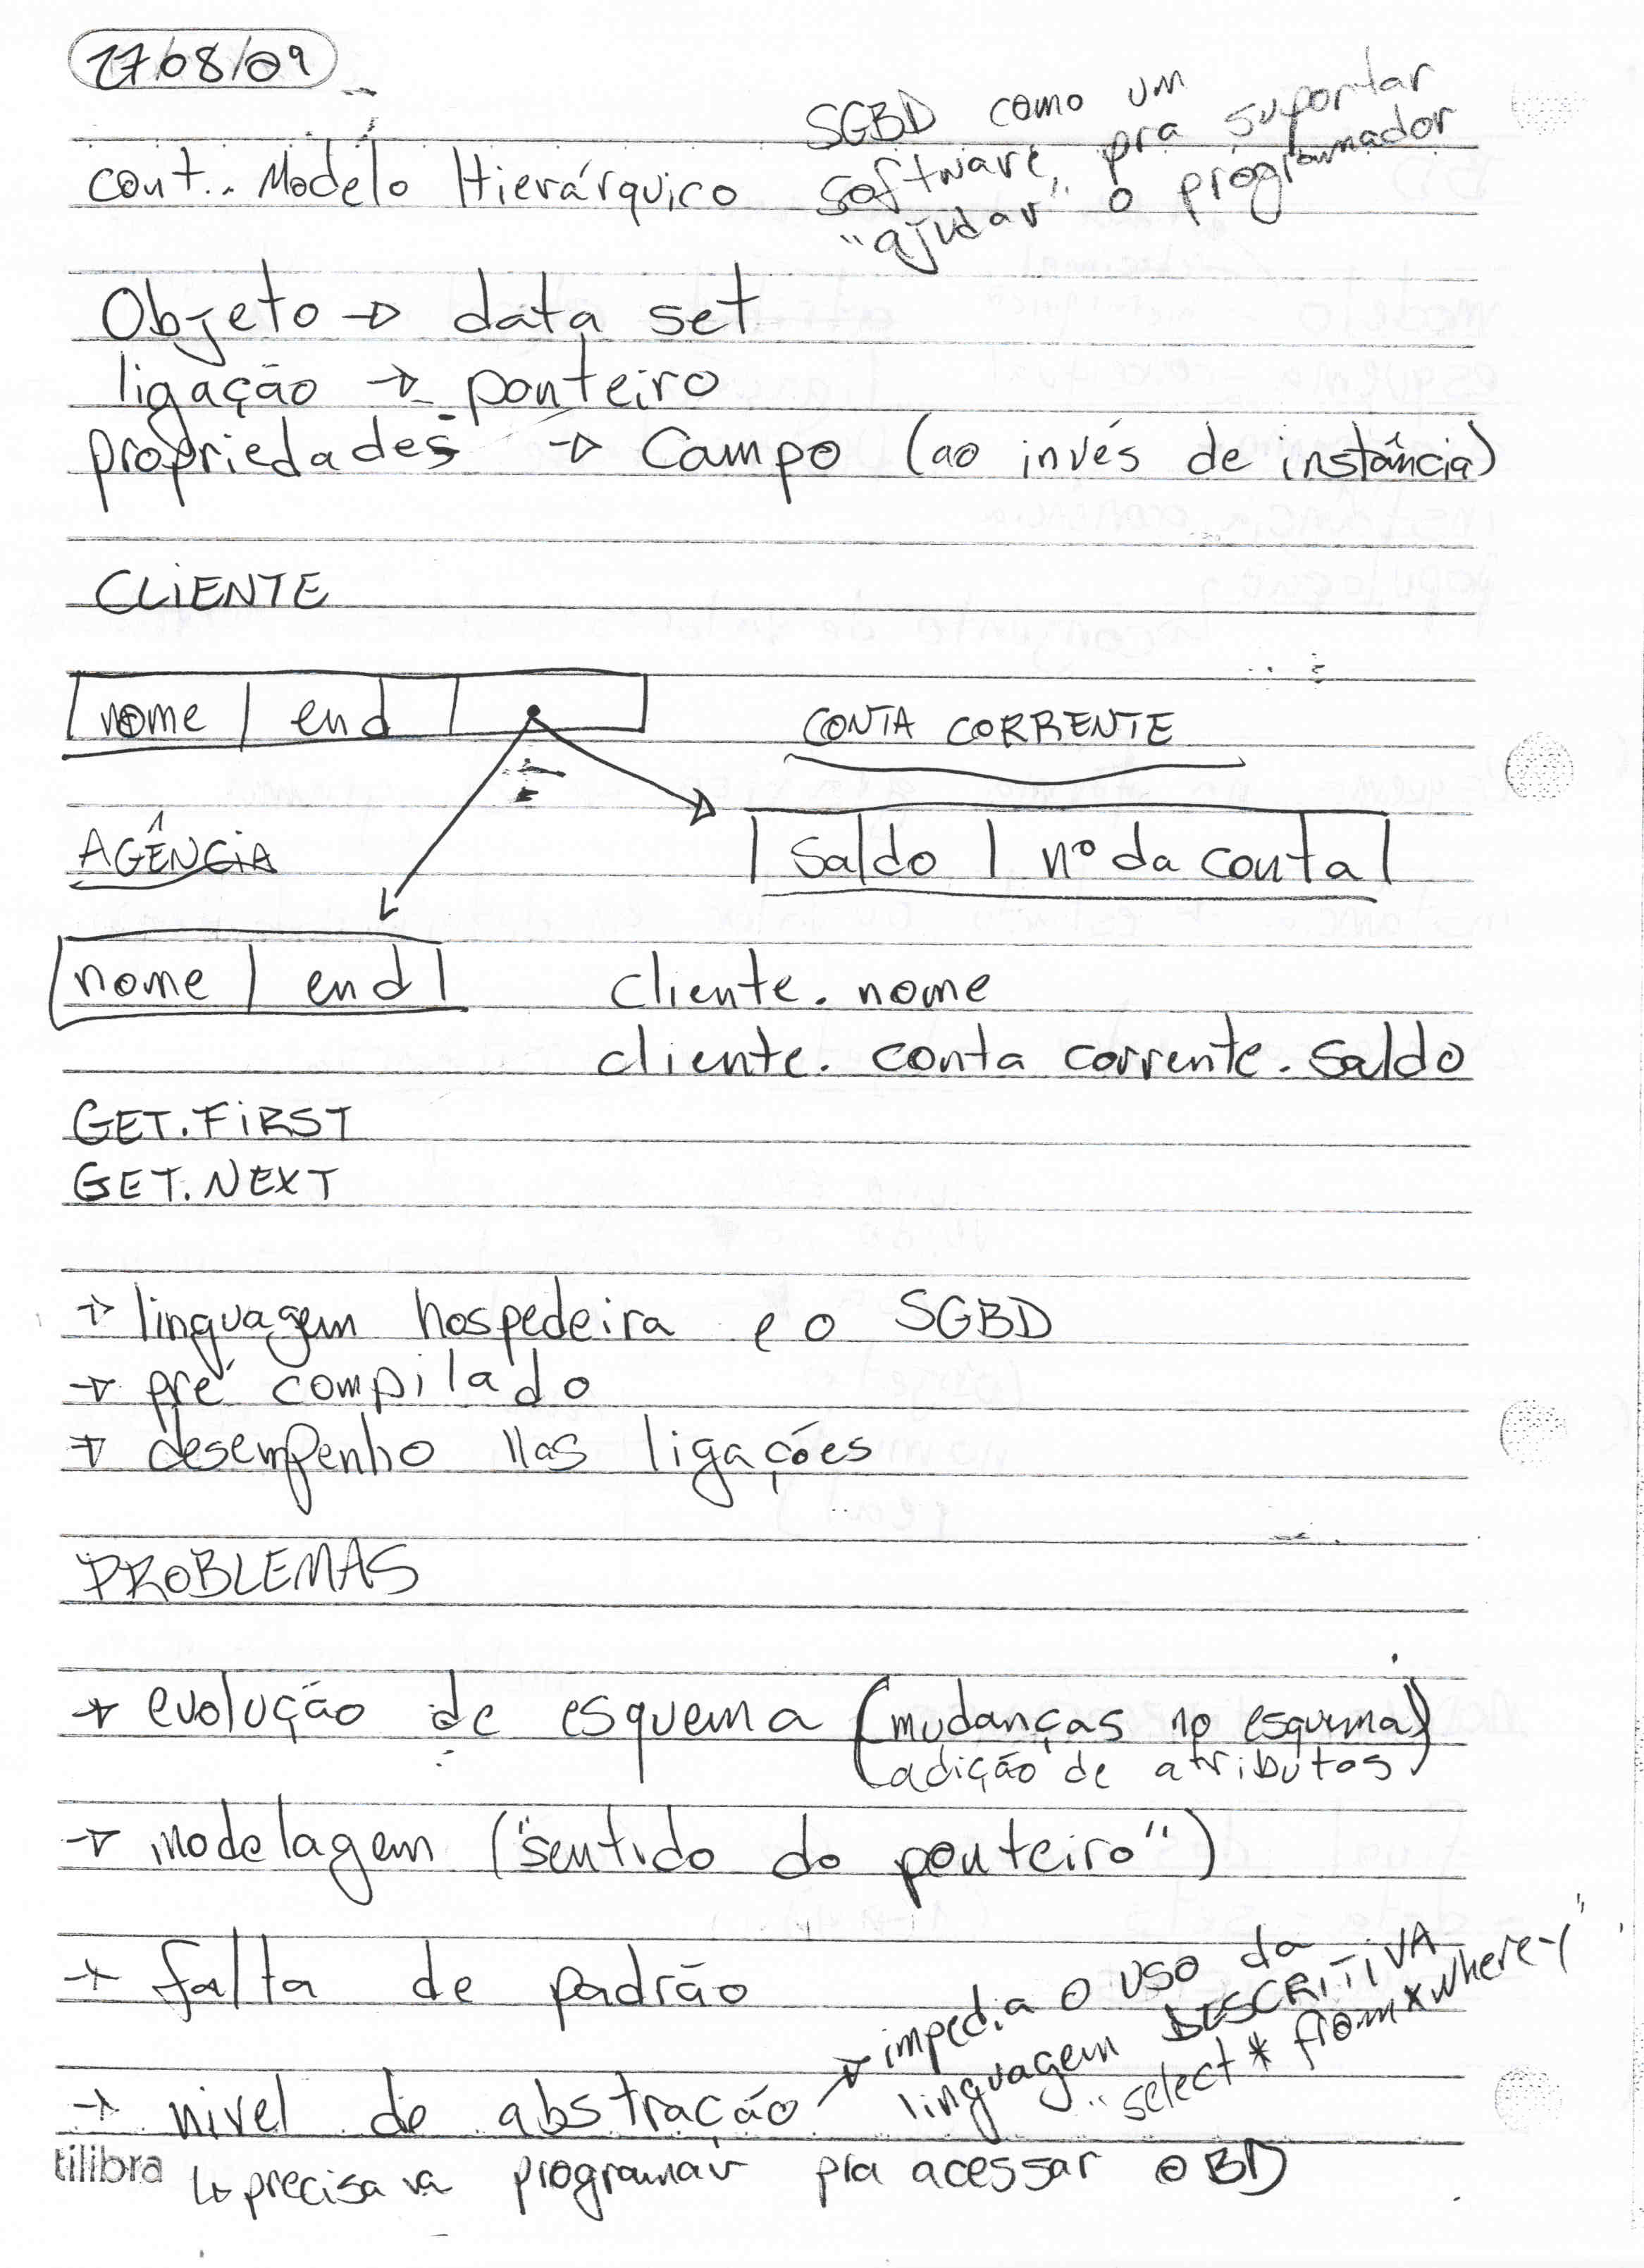 17/08/09
SGBD como um
software, pra suportar
"ajudar" o programador
cont.. Modelo Hierárquico
Objeto → data set
ligação → ponteiro
propriedades → Campo (ao invés de instância)
CLIENTE
nome | end
CONTA CORRENTE
AGÊNCIA
saldo | nº da conta
nome | end
cliente. nome
cliente. conta corrente. saldo
GET.FIRST
GET.NEXT
→ linguagem hospedeira e o SGBD
→ pré compilado
→ desempenho nas ligações
PROBLEMAS
→ evolução de esquema (mudanças no esquema)
(adição de atributos)
→ modelagem ("sentido do ponteiro")
→ falta de padrão
→ nivel de abstração → impedia o uso da
linguagem DESCRITIVA
"select * from x where y"
↳ precisava programar pra acessar o BD
tilibra